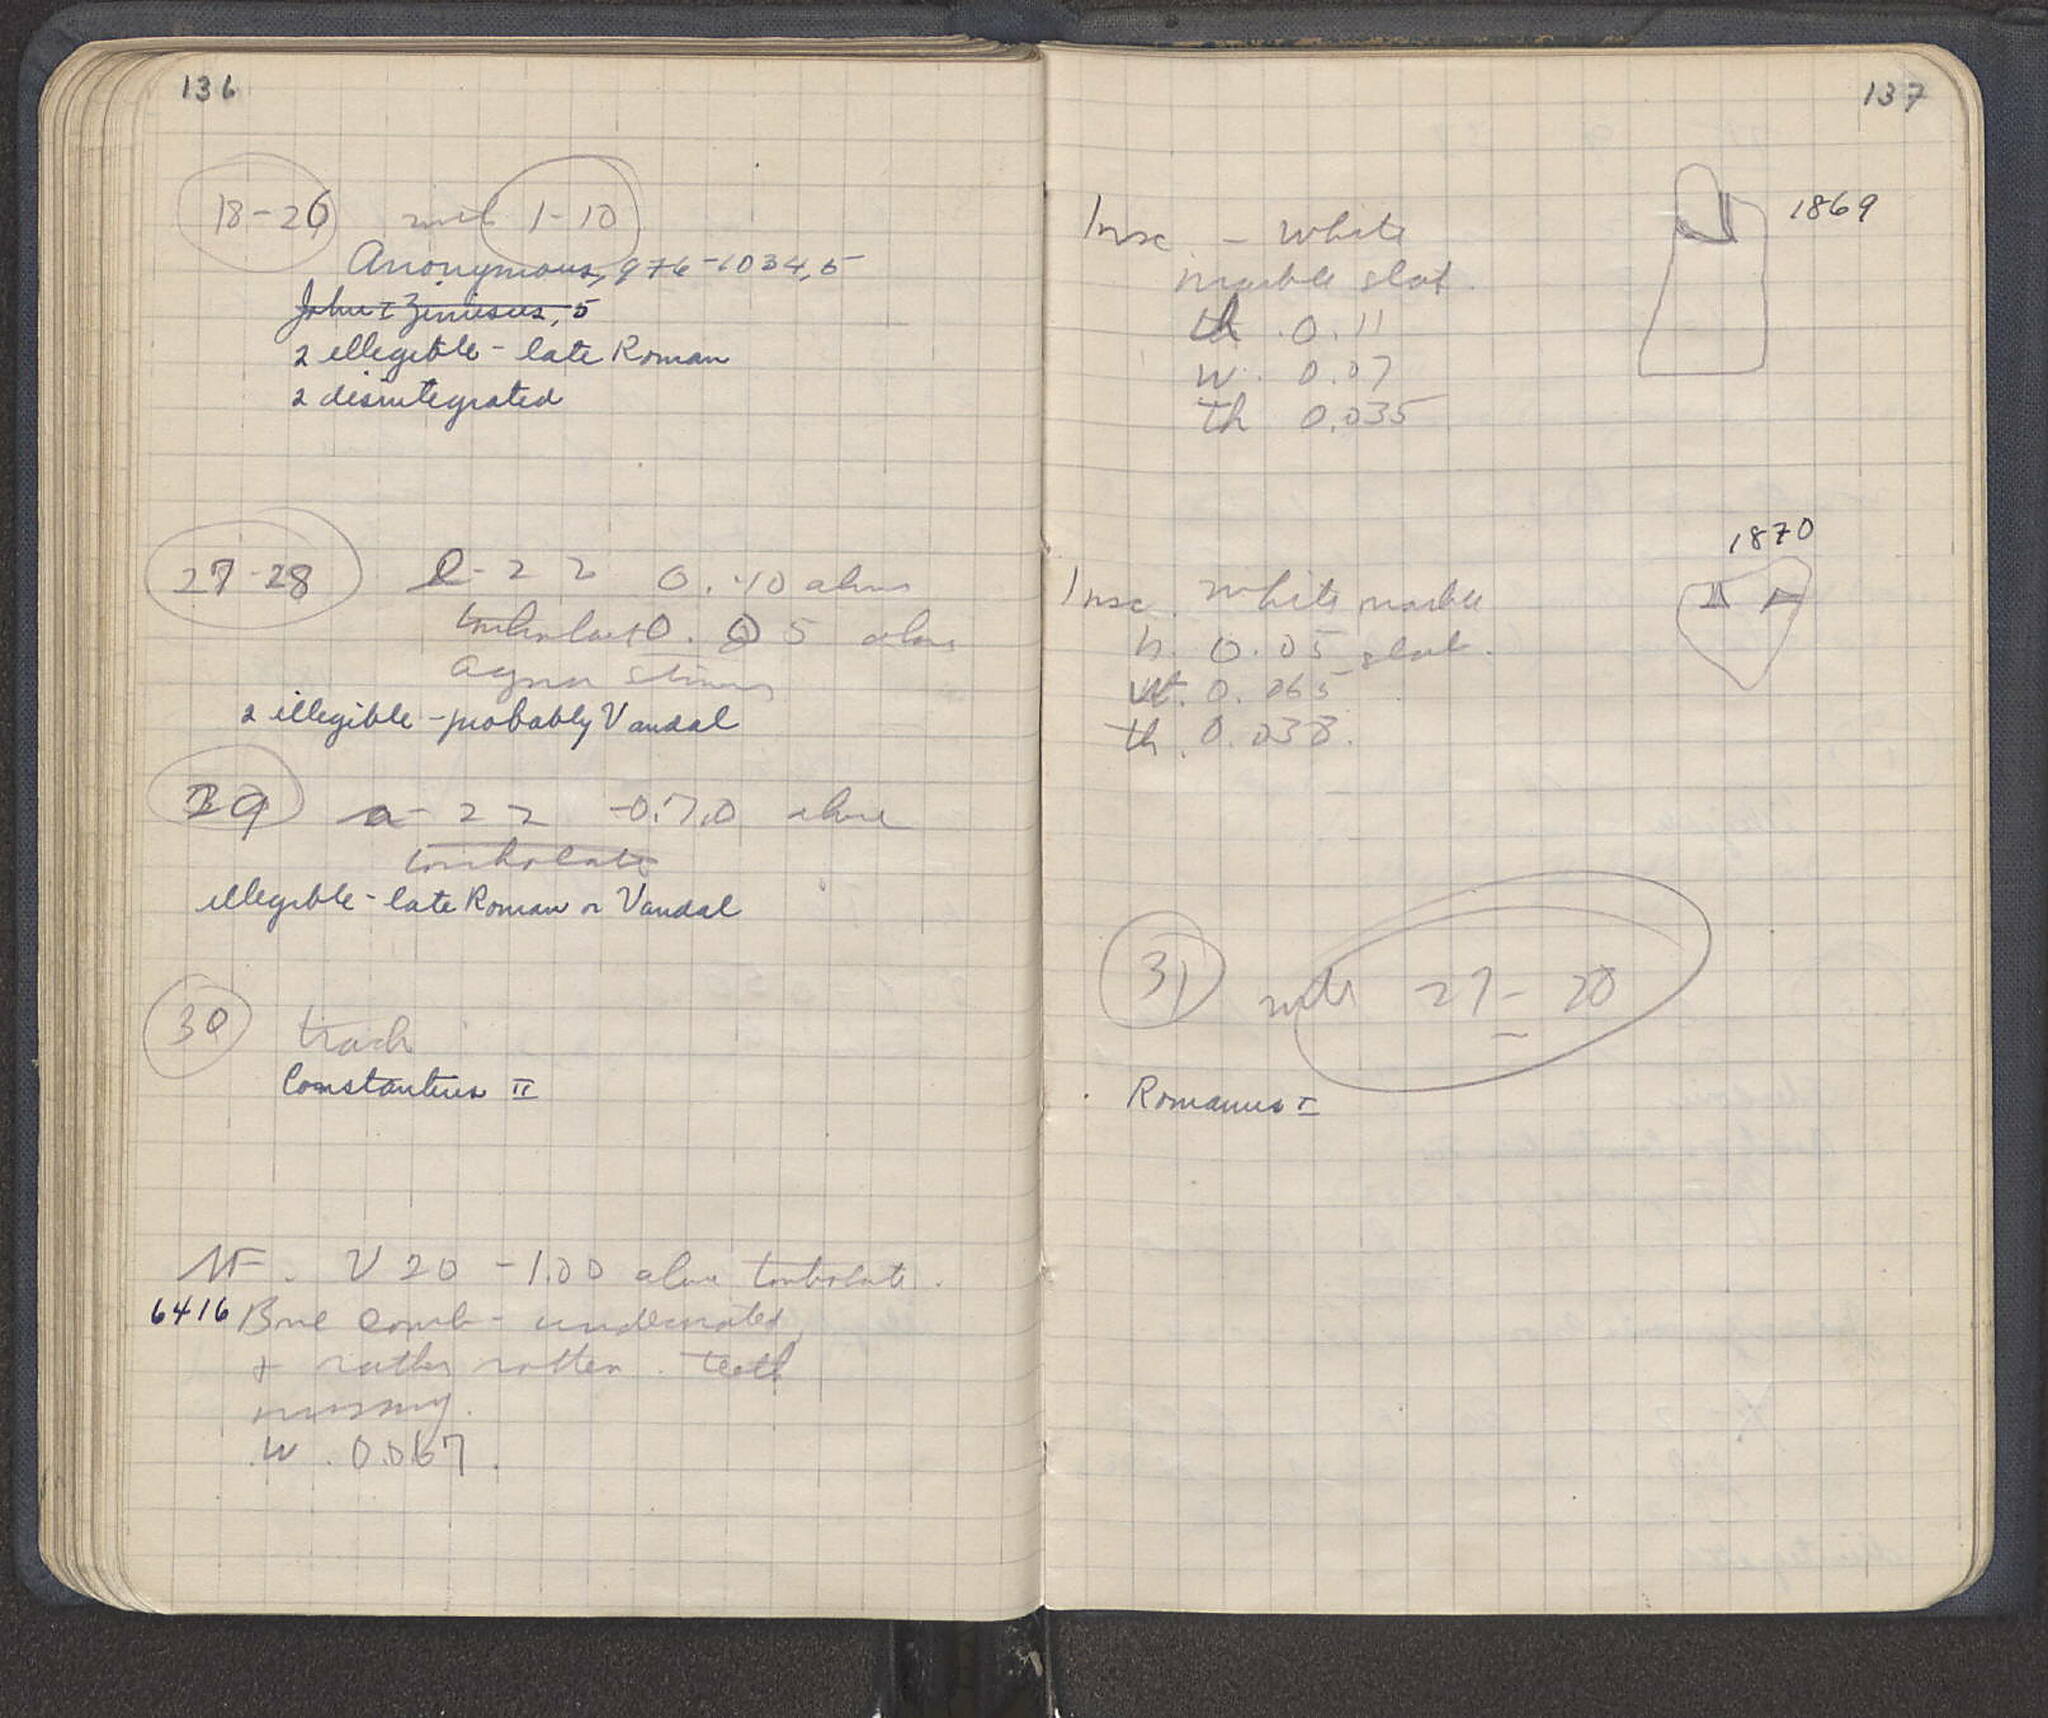 136
18-26 with 1-10
Anonymous, 976-1034, 5
John I Zimisus, 5
2 illegible - late Roman
2 disintegrated
27-28 e-22 0.40 above
0.05 above
2 illegible - probably Vandal
29 a-22 -0.70 above
illegible - late Roman or Vandal
30 trash
Constantius II
MF. V 20 -1.00 above
6416 Bone comb - undecorated
+ rather rotten. teeth
missing.
W. 0.067.
137
Insc. - White 1869
marble slab.
h 0.11
W. 0.07
th 0.035
1870
Insc. White marble
h. 0.05 slab.
W. 0.065
th. 0.038.
31 with
Romanus I